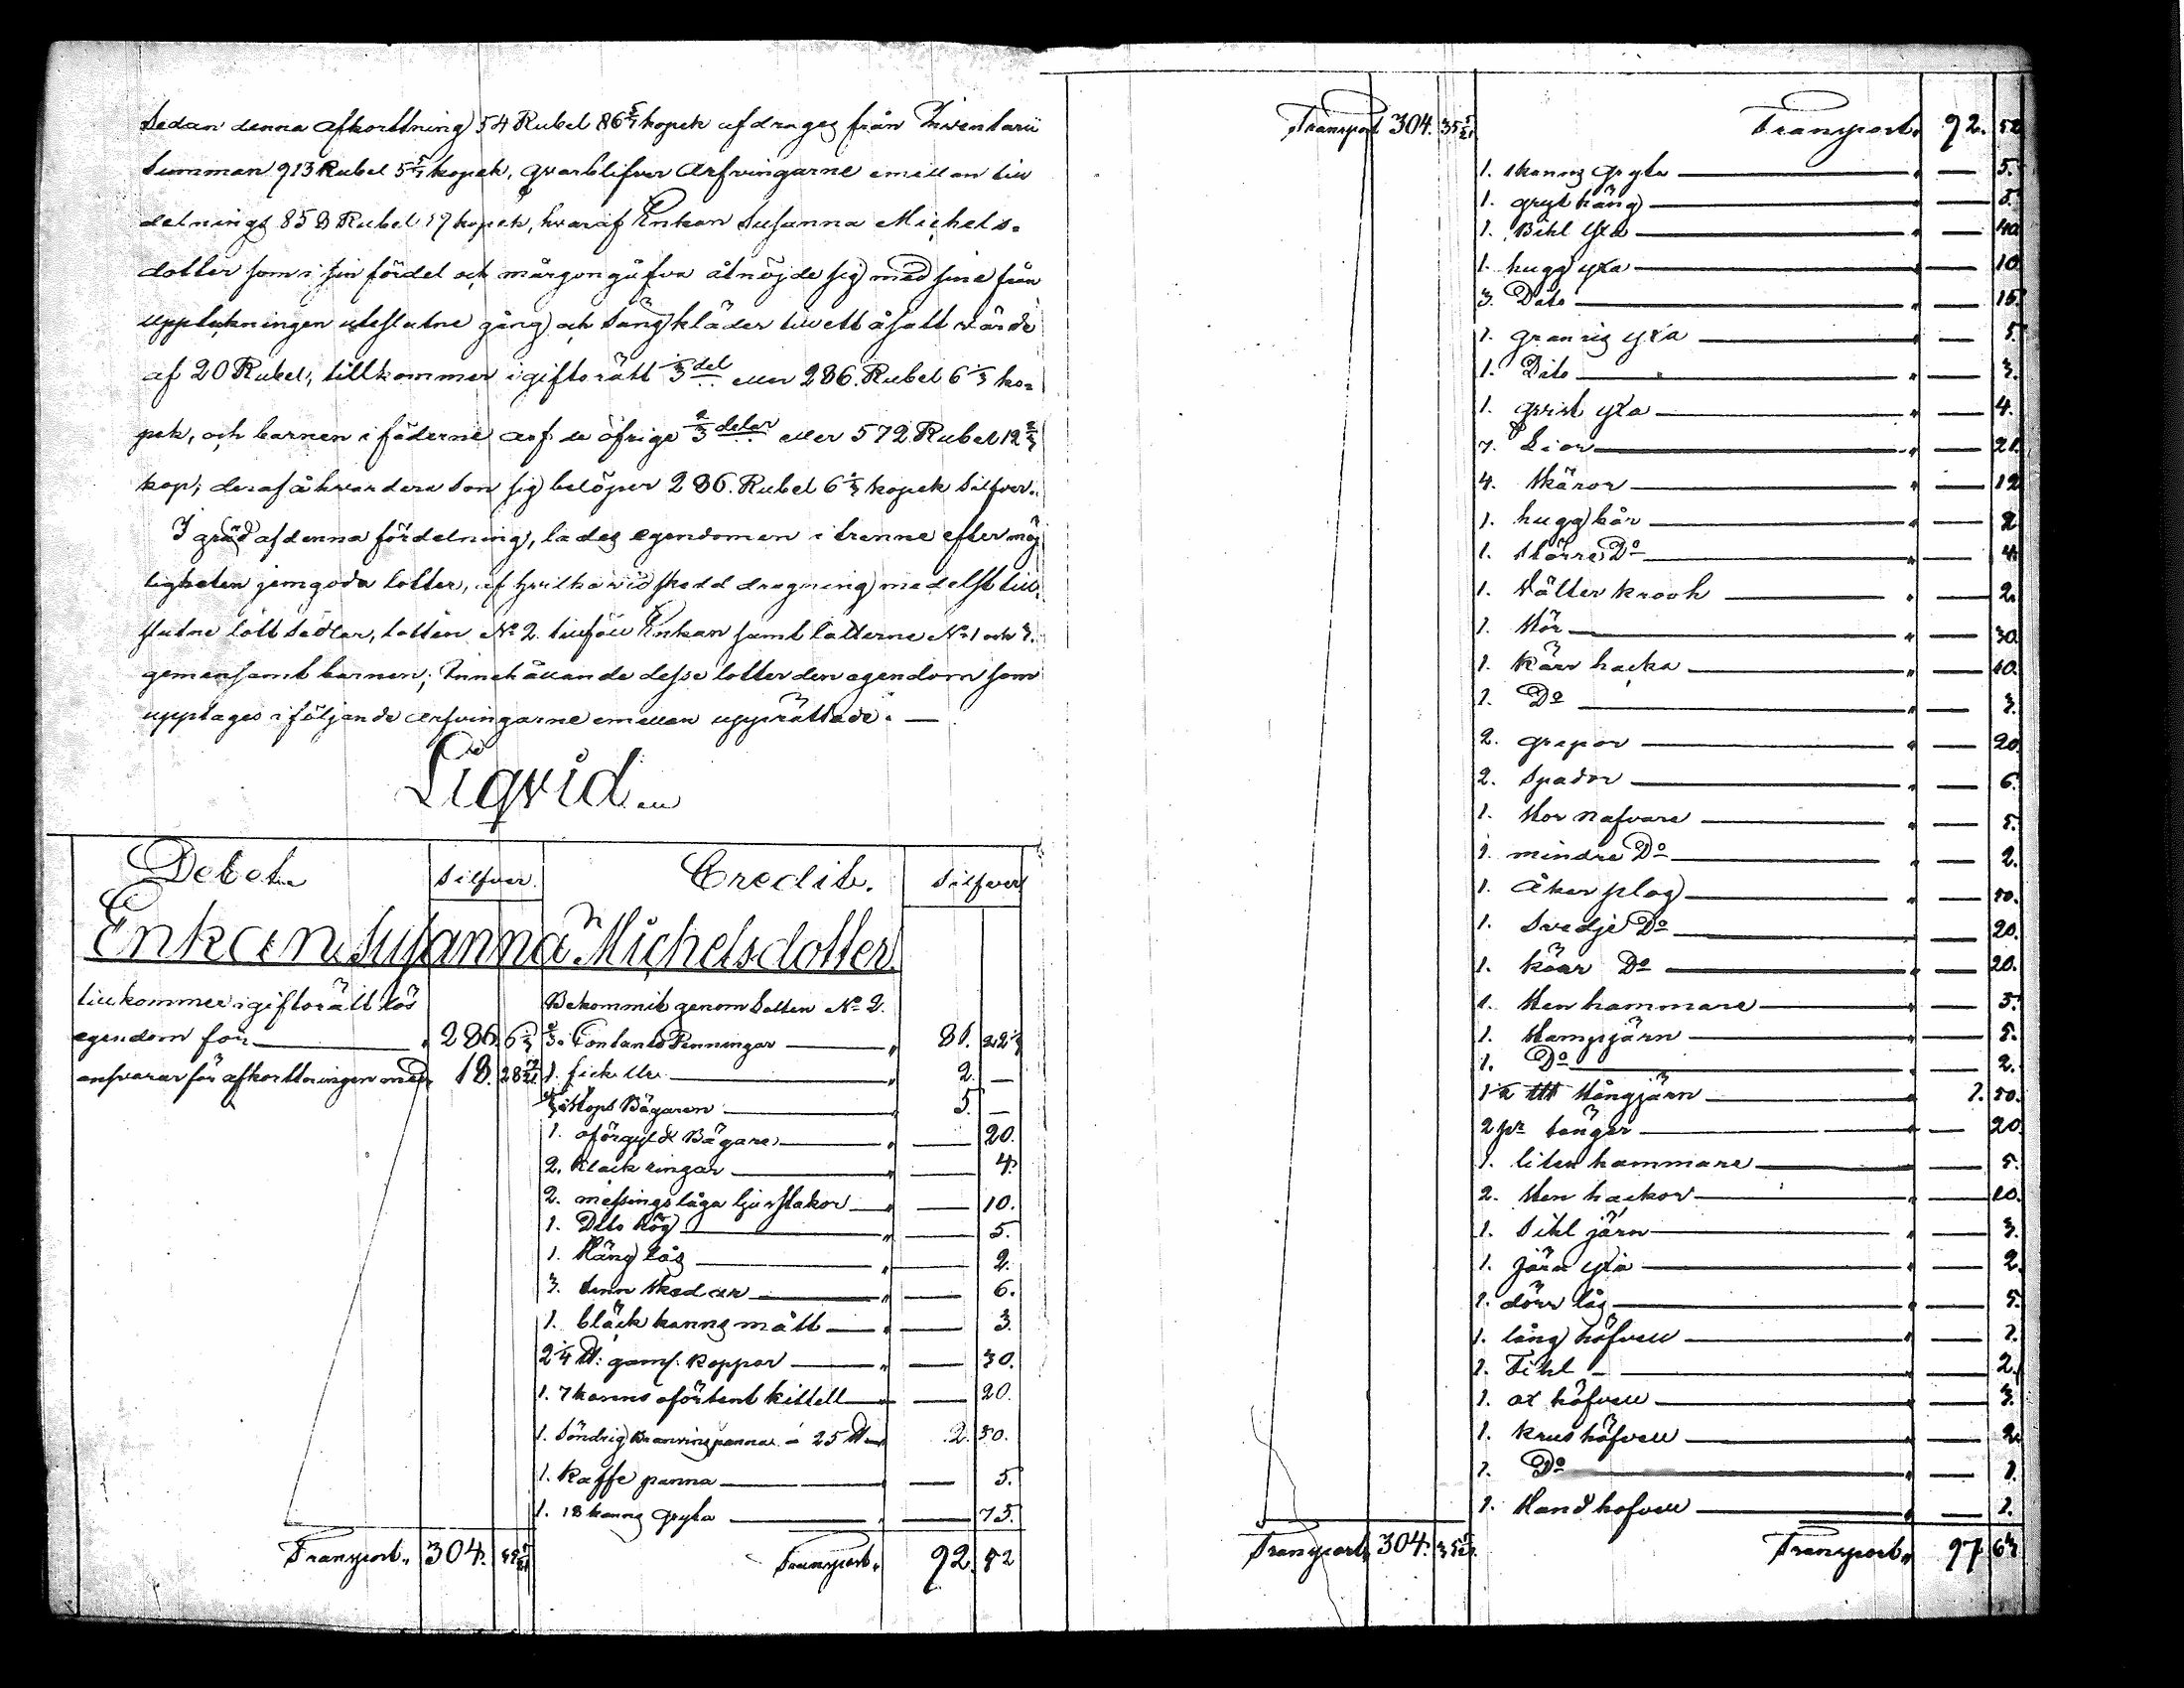 Sedan denna afkorttning 54 Rubel 86 5/7 kopek afdrages från Inventarii
Summan 913 Rubel 5 5/7 kopek, qvarblifver Arfvingarne emellan till
delnings 858 Rubel 19 kopek, hvaraf Enkan Susanna Michels-
dotter som i sin fördel och morgongåfva åtnöjde sig med sine från
upptekningen uteslutne gång och Sängkläder till ett åsatt värde
af 20 Rubel, tillkommer i giftorätt 1/3 del eller 286. Rubel 6 1/3 ko-
pek, och barnen i fäderne arf de öfrige 2/3 delar eller 572 Rubel 12 2/3
kop; deraf å hvardera Son sig belöper 286. Rubel 6 1/3 kopek Silfver.
I grund af denna fördelning, lades egendomen i trenne efter möj
ligheten jemgoda lotter, af hvilka vid skedd dragning medelst till
slutne lott Sedlar, lotten No 2. tillföll Enkan samt lotterne No 1 och 3.
gemensamt barnen; Innehållande desse lotter den egendom som
upptages i följande arfvingarne emellan upprättade.
Liqvid
Debet. Silfver. Credit. Silfver
Enkan Susanna Michelsdotter.
tillkommer i giftorätt lös
egendom för 286. 6 1/3
ansvarar för afkorttningen med 18. 28
Transport. 304.
Bekommit genom Lotten No 2.
Contante Penningar 81. 22
1. fick Ur 2. —
Stops Bägaren 5. —
1. oförgyld Bägare 20.
2. Klack ringar 4.
2. messings låga ljusstakor 10.
1. Dito hög 5.
1. Häng lås 2.
3. tenn skedar 6.
1. bläck kanns mått 3.
2 1/4 ℔: gaml. koppar 30.
1. 7 kanns oförtent kittell 20.
1. Söndrig Branvins panna 25 ℔ 2. 50.
1. Kaffe panna 5.
1. 18 kanns gryta 75.
Transport. 92. 52
Transport 304. 35
Transport. 304. 35
Transport. 92. 52
1. kanns gryta 5.
1. gryt häng 5.
1. Bihl yxa 40
1. hugg yxa 10
3. Dito 15.
1. granris yxa 5.
1. Dito 3.
1. qvist yxa 4.
7. Lior 21.
4. Skäror 12
1. hugg bår 2
1. större Do 4
1. Välter krook 2.
1. Stör 30.
1. Kärr hacka 10.
1. Do 3.
2. grepor 20
2. Spador 6.
1. Stor nafvare 5.
1. mindre Do 2.
1. Åker plog 50.
1. Svedje Do 20.
1. kärr Do 20.
1. Sten hammare 5.
1. Stampjärn 5.
1. Do 2.
1 1/2 Stångjärn 1. 50.
2 pr tänger 20.
1. liten hammare 5.
2. Sten hackor 10.
1. Sihl järn 3.
1. järn yxa 2.
1. dörr lås 5.
1. lång höfvell
1. Fihl 2.
1. ox höfvell 3.
1. krus höfvell 2.
1. Do 1.
1. Hand höfvell 1.
Transport. 97 67